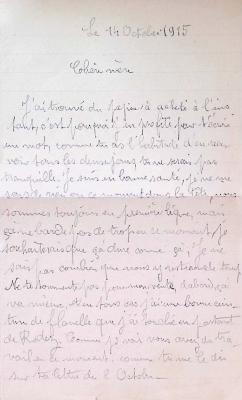 Le 14 Octobre 1915
Chère mère
J'ai trouvé du papier à acheté à l'ins
tant, c'est pourquoi j'en profite pour t'écrire
un mot, comme tu as l'habitude d'en rece
voir tous les deux jours, tu ne serais pas
tranquille. Je suis en bonne santé, je ne me
en ce moment
sommes toujours en première ligne, mais
ça ne barde pas de trop en ce moment. Je
souhaiterais que ça dure comme ça, Je ne
sais pas combien que nous y resterons de temps
Ne te tourmente pas pour mon ventre, d'abord ça
va même. et en tous cas j'ai une bonne cein
ture de flanelle que j'ai touché en partant
de Rodez. Comme je vois vous avez du tra
vail en ce moment, comme tu me le dis
sur ta lettre du 8 Octobre